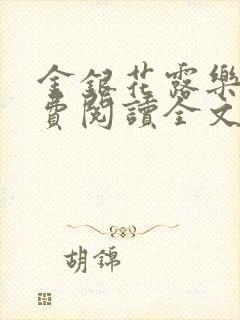 金銀花露樂
費閱讀全文
胡錦